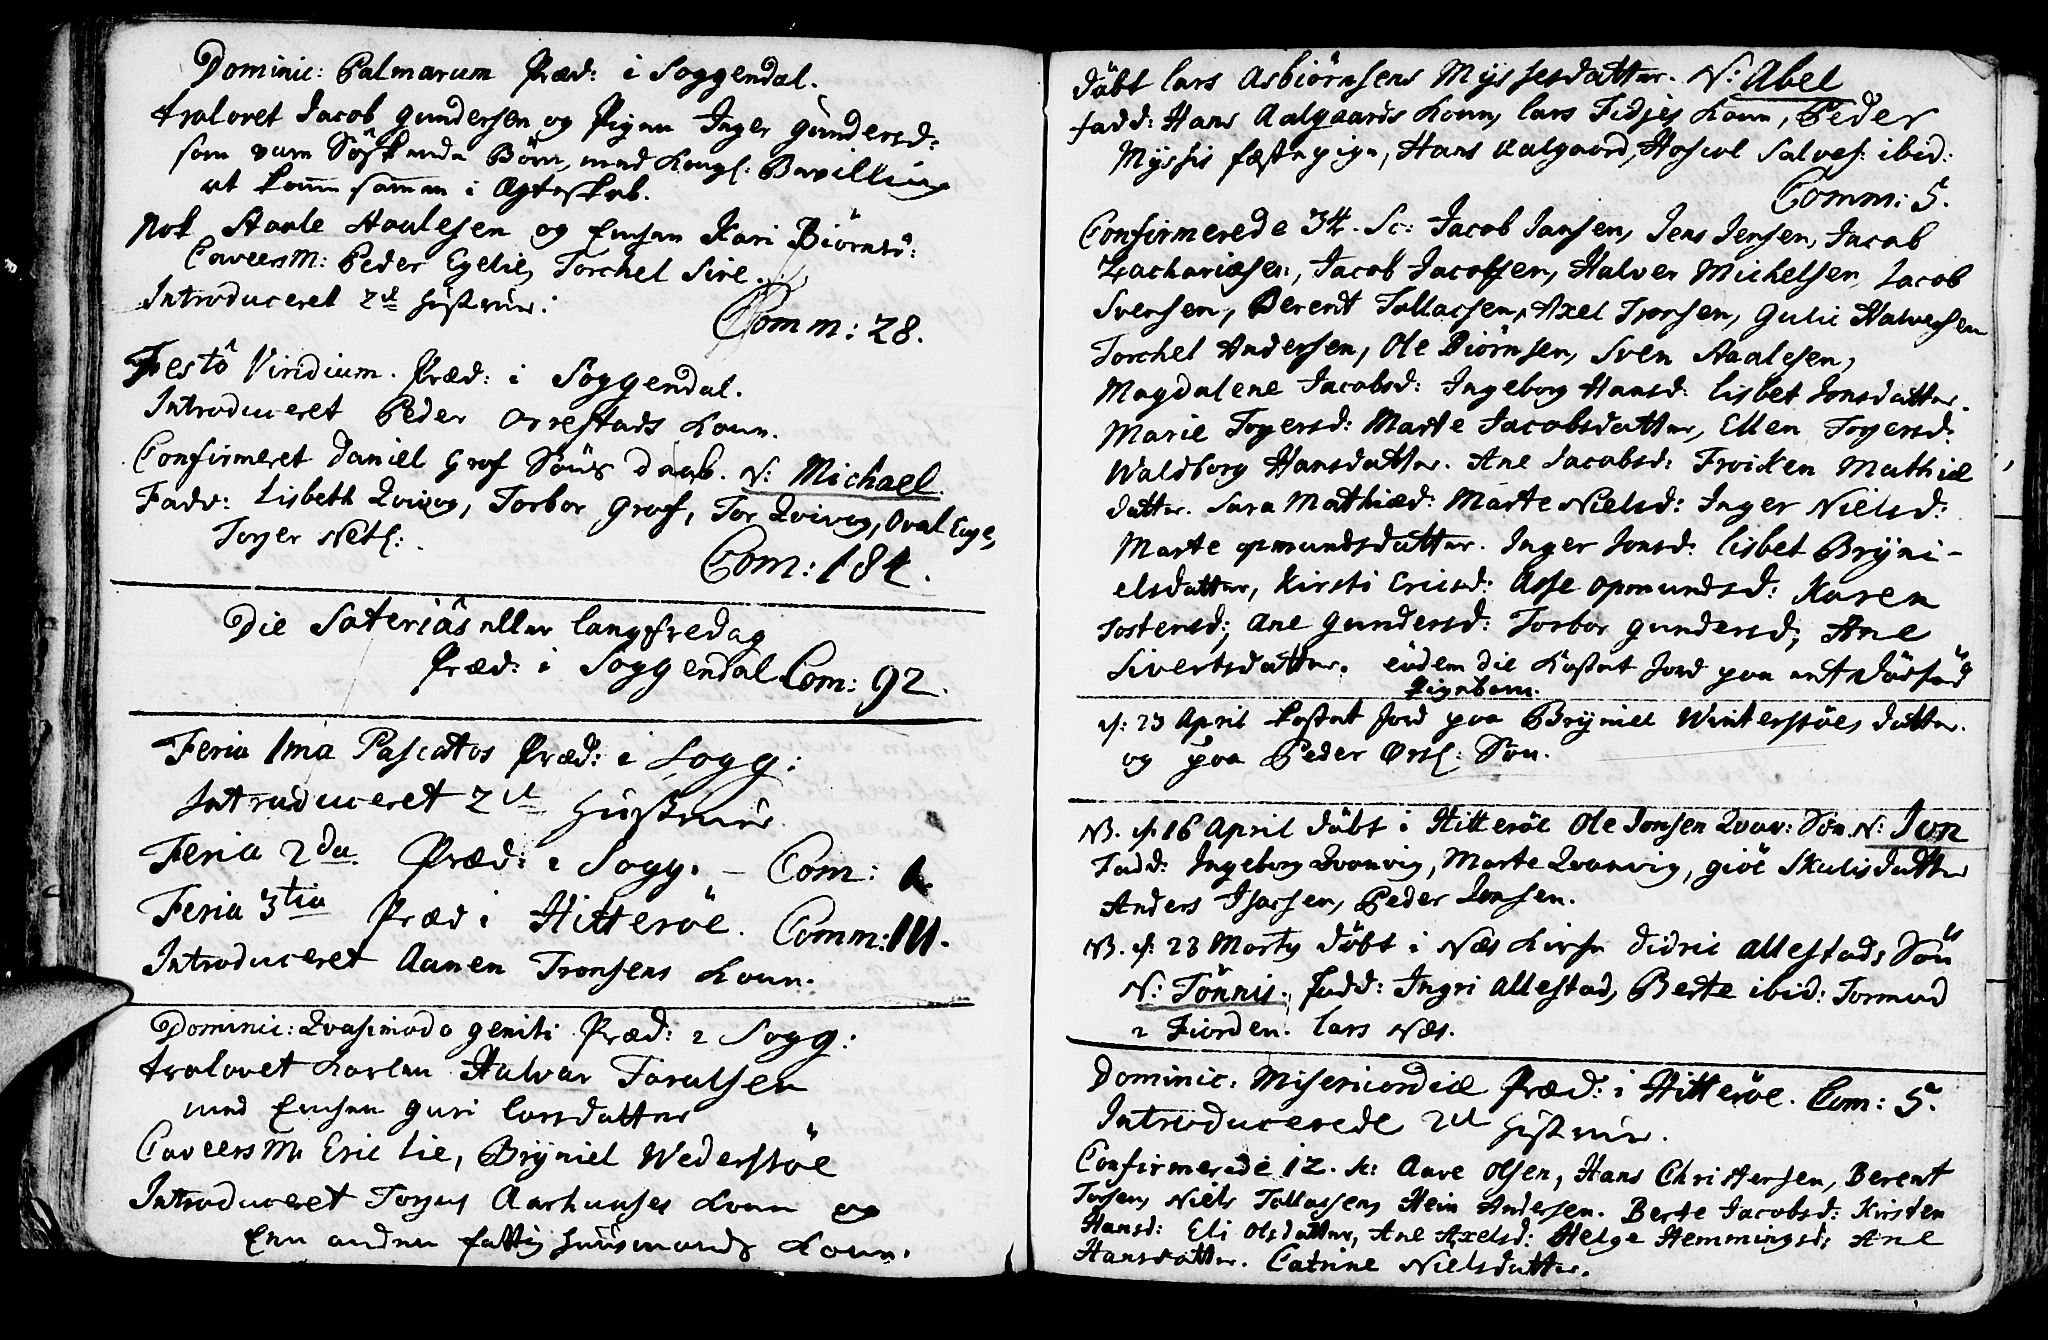 Dominic: Palmarum Præd: i Soggendal.
trolovet Jacob Gundersen og Pigen Inger Gundersd:
som vare Söskende Börn, med Kongl: Bevilling
at komme sammen i Ægteskab.
nok Staale Staalesen og Enken Kari Biörnsd:
CaveersM: Peder Egelie, Torchel Sire.
Introduceret 2de Hustruer.
Comm: 28.
Festô Viridium. Præd: i Soggendal.
Introduceret Peder Orrestads Kone.
Confirmeret Daniel Grof Söns Daab. N: Michael.
Fadd: Lisbeth Qvivog, Torbor Grof, Tor Qvivog, Oval Eege,
Torger Netl:
Com: 184.
Die Soteriâs eller langfredag
Præd: i Soggendal Com: 92.
Feria 1ma Pascatos Præd: i Sogg:
Introduceret 2de Hustruer.
Feria 2da. Præd: i Sogg. – Com: 1.
Feria 3tia Præd i Hitteröe. Comm: 111.
Introduceret Aanen Tronsens Kone.
Dominic: Qvasimodo geniti Præd: i Sogg:
trolovet Karlen Halvor Torulsen
med Enken Guri Larsdatter
CaveersM. Eric Lie, Brÿniel Wederstöe
Introduceret Torjus Aarhuuses Kone og
Enn anden fattig Huusmands Kone.
döbt Lars Asbiörnsens Myssesdatter. N: Abel
Fadd: Hans Aalgaards Kone, Lars Tidjes Kone, Peder
Myssis fæstepige, Hans Aalgaard, Hoscol Salves: ibid:
Comm: 5.
Confirmerede 34. Sc: Jacob Jansen, Jens Jensen, Jacob
Zachariæsen, Jacob Jacobsen, Halver Michelsen, Jacob
Svensen, Berent Tollacsen, Axel Torsen, Gulic Halvorsen
Torchel Andersen, Ole Biörnsen, Sven Staalesen,
Magdalene Jacobsd: Ingeborg Hansd: Lisbet Jonsdatter.
Marie Togersd: Marte Jacobsdatter, Ellen Togersd:
Waldborg Hansdatter. Ane Jacobsd: Froiken Mathiæ
datter. Sara Mathiæd: Marte Nielsd: Inger Nielsd:
Marte Opmundsdatter. Inger Jonsd: Lisbet Brÿni-
elsdatter, Kirsti Ericsd: Asse Opmundsd: Karen
Tostensd: Ane Gundersd: Torbor Gundersd; Ane
Sivertsdatter. eodem die Kastet Jord paa et dödföd
Pigebarn.
d: 23 April kastet Jord paa Brÿniel Winterstöes datter.
og paa Peder Örsl: Sön.
NB. d: 16 April döbt i Hitteröe Ole Jonsen Qvav: Sön. N: Jon
Fadd: Ingeborg Qvanvig, Marte Qvanvig, Giöe Skulisdatter
Anders Isacsen, Peder Jonsen.
NB. d: 23 Martij döbt i Næs Kirke Didric Allestads Sön
N: Tönnis. Fadd: Ingri Allestad, Berte ibid: Tormod
i Fiorden. Lars Næs.
Dominic: Misericordiæ Præd: i Hitteröe. Com: 5.
Introducerede 2de Hustruer.
Confirmerede 12. sc: Aave Olsen, Hans Christensen, Berent
Torsen, Niels Tollassen, Hein Andersen. Berte Jacobsd: Kirsten
Hansd: Eli Olsdatter, Ane Axelsd: Helge Hemmingsd; Ane
Hansdatter. Catrine Nielsdatter.